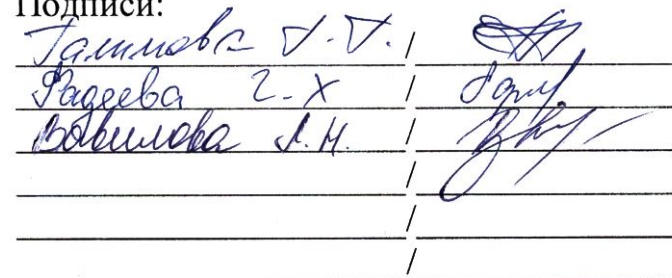 Подписи:
Галимова Г.Г. /
Фадеева Г.Х /
Вавилова Л.Н. /
/
/
/